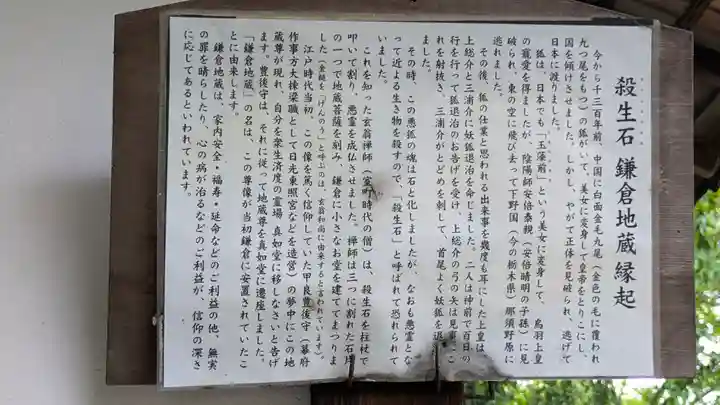 殺生石 鎌倉地蔵縁起
今から千三百年前、中国に白面金毛九尾（金色の毛に覆われ
九つ尾をもつ）の狐がいて、美女に変身して皇帝をとりこにし、
国を傾けさせました。しかし、やがて正体を見破られ、逃げて
日本に渡りました。
狐は、日本でも「玉藻前」という美女に変身して、鳥羽上皇
の寵愛を得ましたが、陰陽師安倍泰親（安倍晴明の子孫）に見
破られ、東の空に飛び去って下野国（今の栃木県）那須野原に
逃れました。
その後、狐の仕業と思われる出来事を幾度も耳にした上皇は
上総介と三浦介に妖狐退治を命じました。二人は神前で百日の
行を行って狐退治のお告げを受け、上総介の弓の矢は見事
れを射抜き、三浦介がとどめを刺して、首尾よく妖狐を退
ました。
その時、この悪狐の魂は石と化しましたが、なおも悪霊とな
って近よる生き物を殺すので、「殺生石」と呼ばれて恐れられて
いました。
これを知った玄翁禅師（室町時代の僧）は、殺生石を杖で
叩いて割り、悪霊を成仏させました。禅師は三つに割れた石
の一つで地蔵菩薩を刻み、鎌倉に小さなお堂を建ててまつりま
した（金鎚を「げんのう」と呼ぶのは、玄翁和尚に由来すると言われています）。
江戸時代当初、この像を篤く信仰していた甲良豊後守（幕府
作事方大棟梁職として日光東照宮などを造営）の夢中にこの地
蔵尊が現れ、自分を衆生済度の霊場 真如堂に移しなさいと告げ
ます。豊後守は、それに従って地蔵尊を真如堂に遷座しました。
「鎌倉地蔵」の名は、この尊像が当初鎌倉に安置されていたこ
とに由来します。
鎌倉地蔵は、家内安全・福寿・延命などのご利益の他、無実
の罪を晴らしたり、心の病が治るなどのご利益が、信仰の深さ
に応じてあるといわれています。